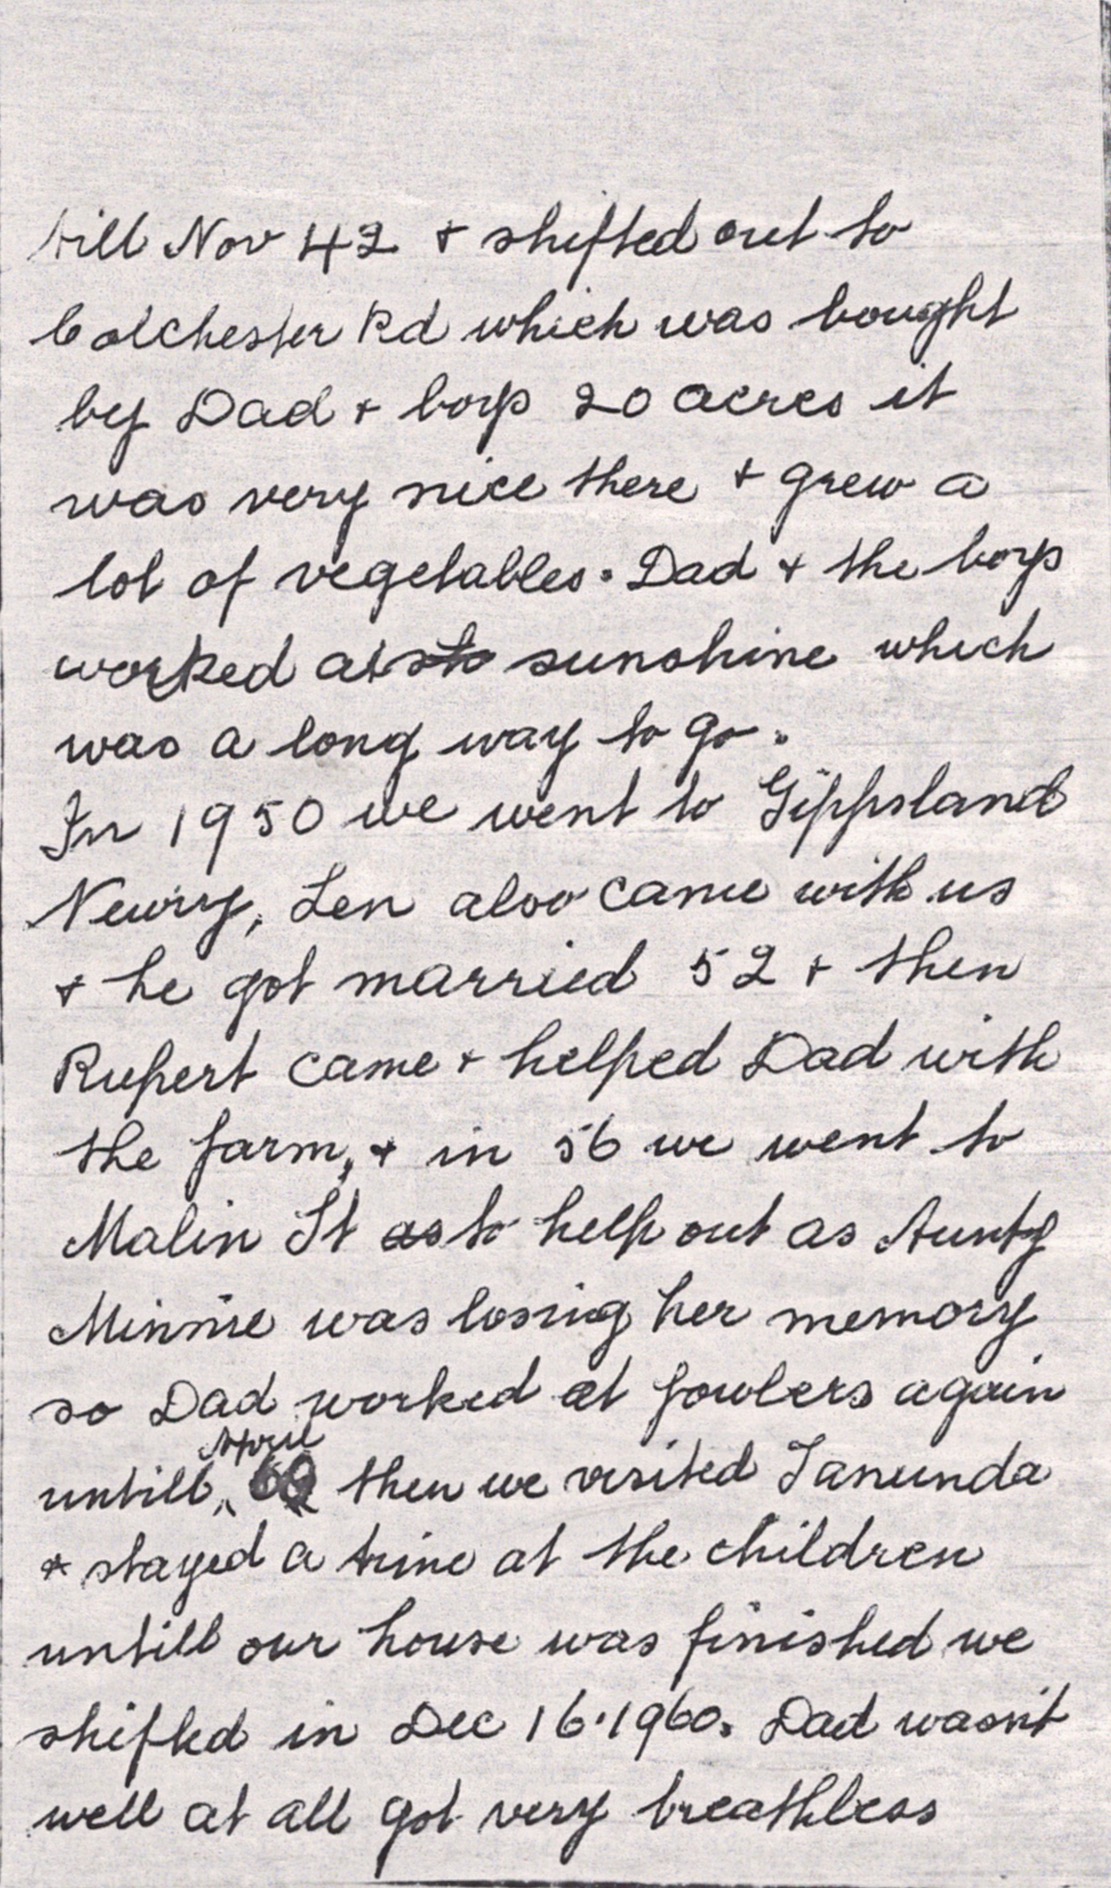 till Nov 42 + shifted out to
Colchester Rd which was bought
by Dad + boys 20 acres it
was very nice there + grew a
lot of vegetables. Dad + the boys
worked at sunshine which
was a long way to go.
In 1950 we went to Gippsland
Newry, Len also came with us
+ he got married 52 + then
Rupert came + helped Dad with
the farm, + in 56 we went to
Malin St as to help out as Aunty
Minnie was losing her memory
so Dad worked at fowlers again
April
untill, 60 then we visited Tanunda
+ stayed a time at the children
untill our house was finished we
shifted in Dec 16.1960. Dad wasn't
well at all got very breathless